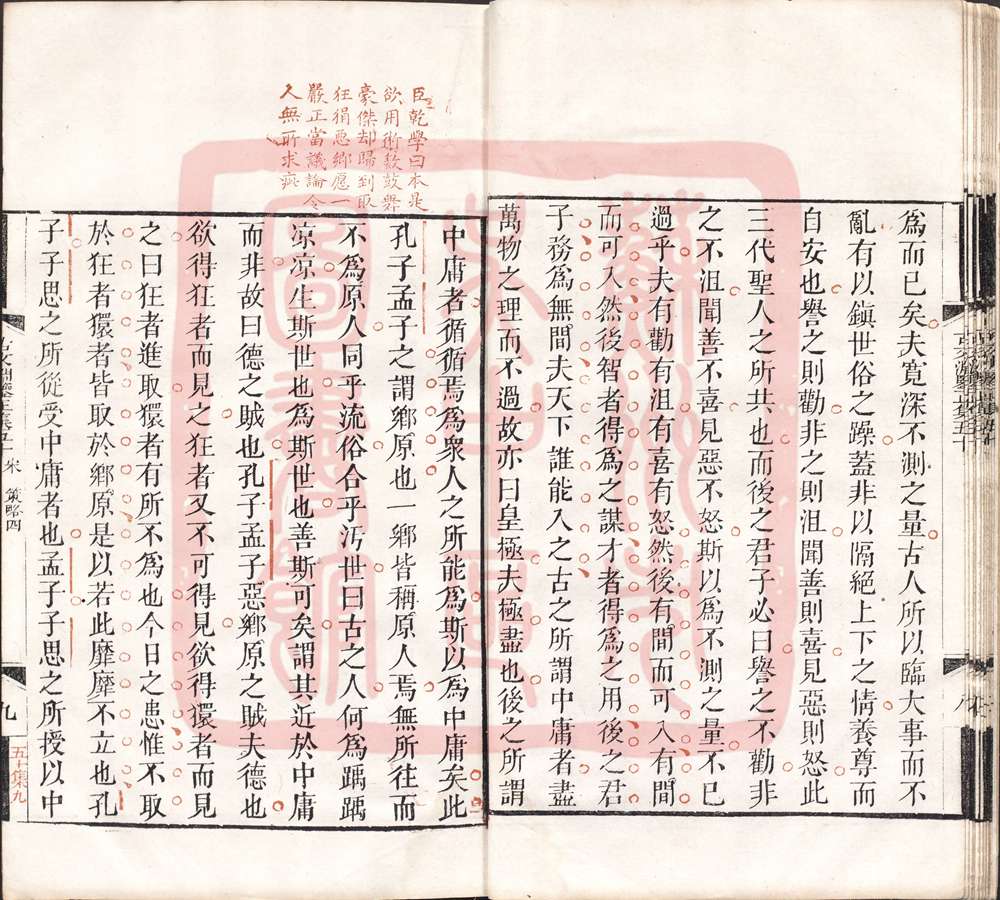 為而已矣夫寬深不測之量古人所以臨大事而不
亂有以鎮世俗之躁蓋非以隔絕上下之情養尊而
自安也譽之則勸非之則沮聞善則喜見惡則怒此
三代聖人之所共也而後之君子必曰譽之不勸非
之不沮聞善不喜見惡不怒斯以為不測之量不已
過乎夫有勸有沮有喜有怒然後有間而可入有間
而可入然後智者得為之謀才者得為之用後之君
子務為無間夫天下誰能入之古之所謂中庸者盡
萬物之理而不過故亦曰皇極夫極盡也後之所謂
臣乾學曰本是
欲用術數鼓舞
豪傑却歸到取
狂狷惡鄉愿一
嚴正當議論令
人無所求疵
中庸者循循焉為衆人之所能為斯以為中庸矣此
孔子孟子之謂鄉原也一鄉皆稱原人焉無所往而
不為原人同乎流俗合乎汚世曰古之人何為踽踽
凉凉生斯世也為斯世也善斯可矣謂其近於中庸
而非故曰德之賊也孔子孟子惡鄉原之賊夫德也
欲得狂者而見之狂者又不可得見欲得獧者而見
之曰狂者進取獧者有所不為也今日之患惟不取
於狂者獧者皆取於鄉原是以若此靡靡不立也孔
子子思之所從受中庸者也孟子子思之所授以中
宋 策略四
九
五十集九